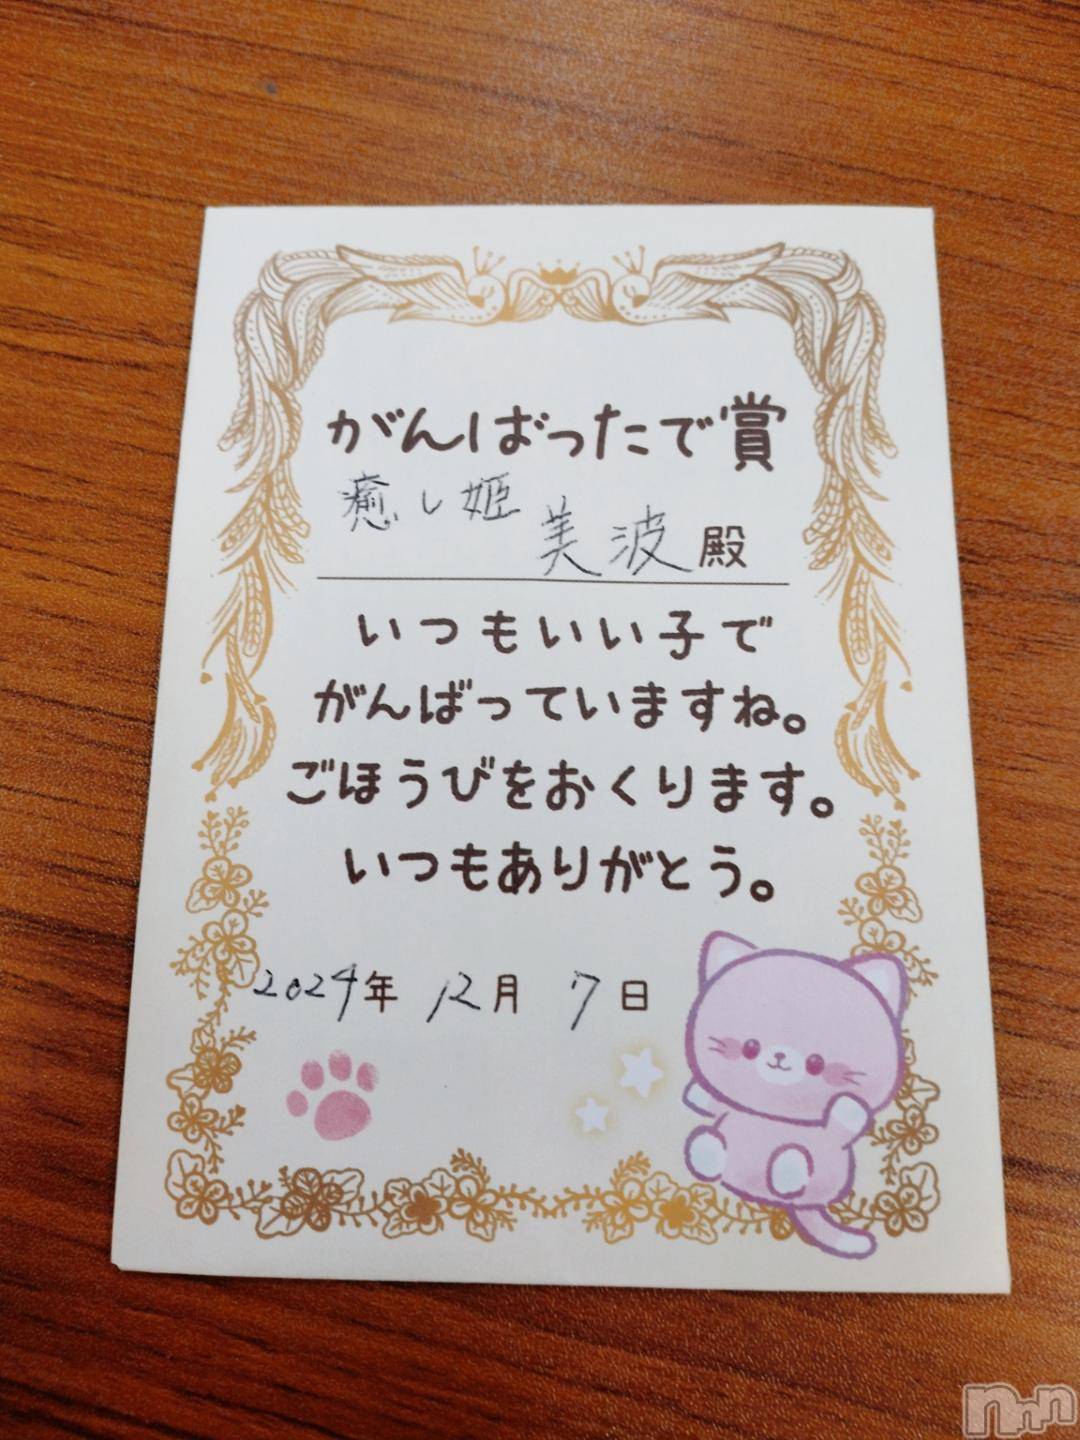 がんばったで賞
癒し姫
美波殿
いつもいい子で
がんばっていますね。
ごほうびをおくります。
いつもありがとう。
2024年 12月 7日
nnn